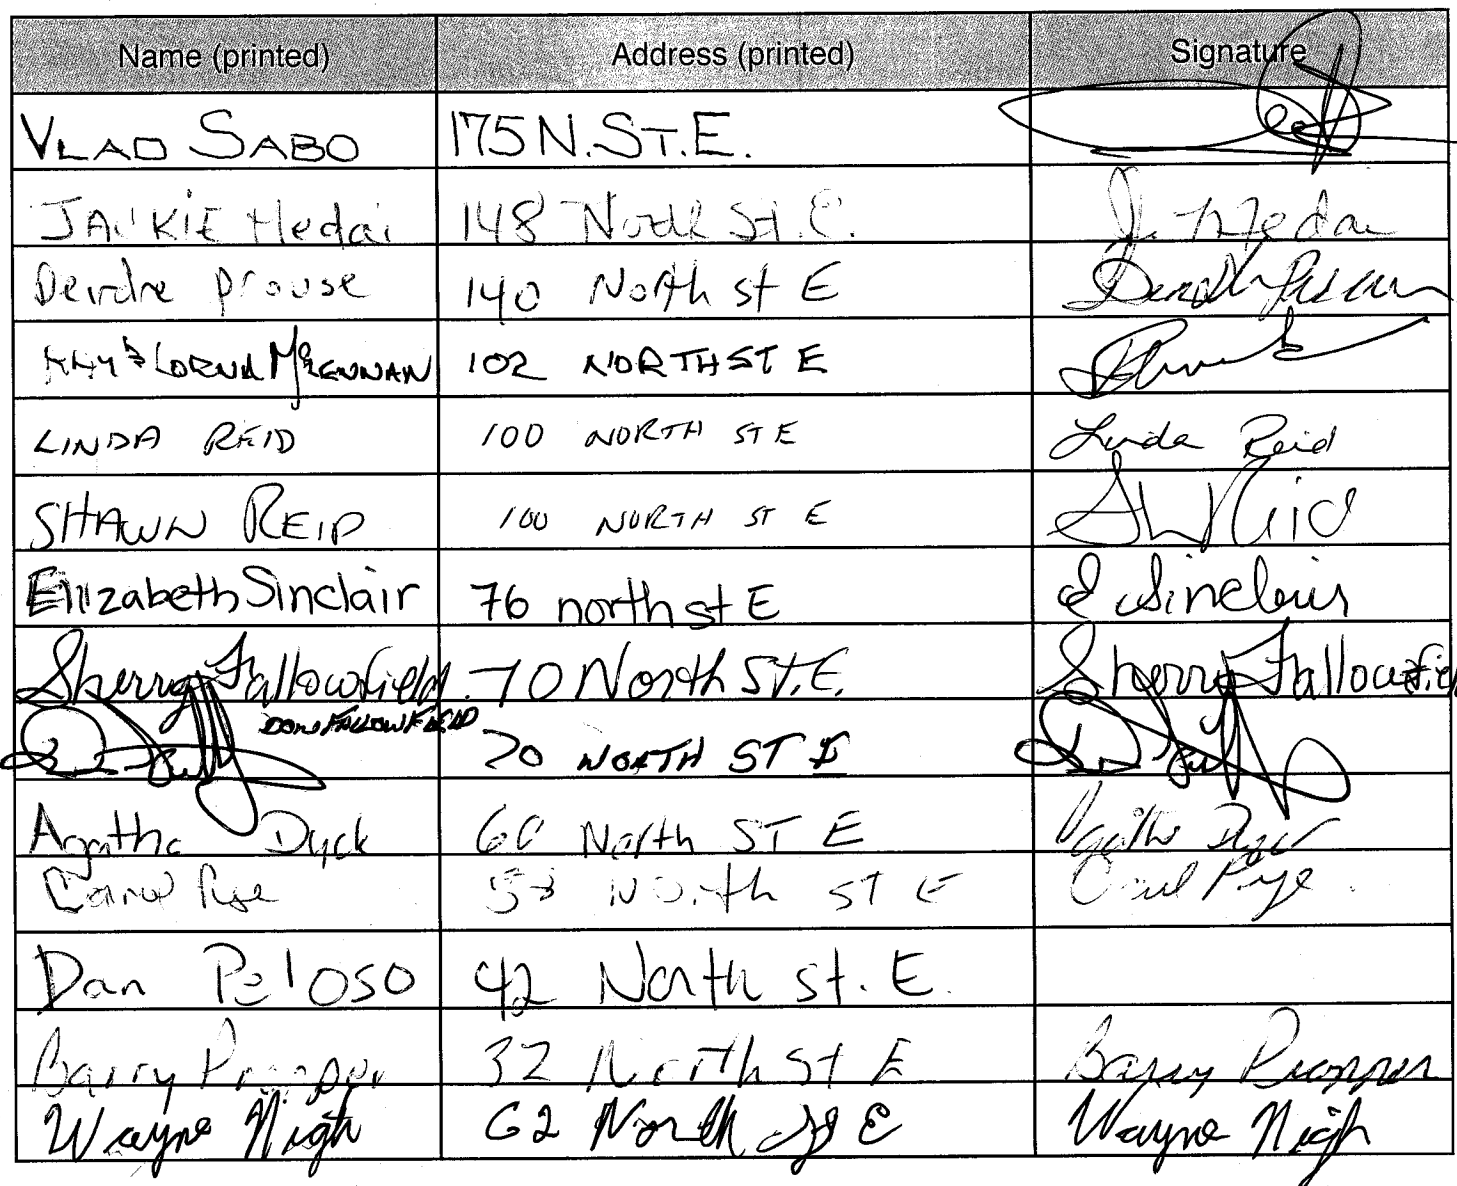 Name (printed) Address (printed) Signature
VLAD SABO 175 N. ST. E.
JACKIE Hedai 148 North St. E. J. Hedai
Deirdre Prouse 140 North st E
& LORNA 102 NORTH ST E
LINDA REID 100 NORTH ST E Linda Reid
SHAWN REID 100 NORTH ST E Sh Reid
Elizabeth Sinclair 76 north st E E Sinclair
Sherry Fallowfield 70 North ST. E. Sherry Fallowfield
DON FALLOWFIELD 70 NORTH ST E
Agatha Dyck 60 North ST E Agatha Dyck
Carol Pye North ST E Carol Pye
Dan Peloso 42 North st. E.
Barry Propper 32 North St E Barry Propper
Wayne Nigh 62 North St E Wayne Nigh